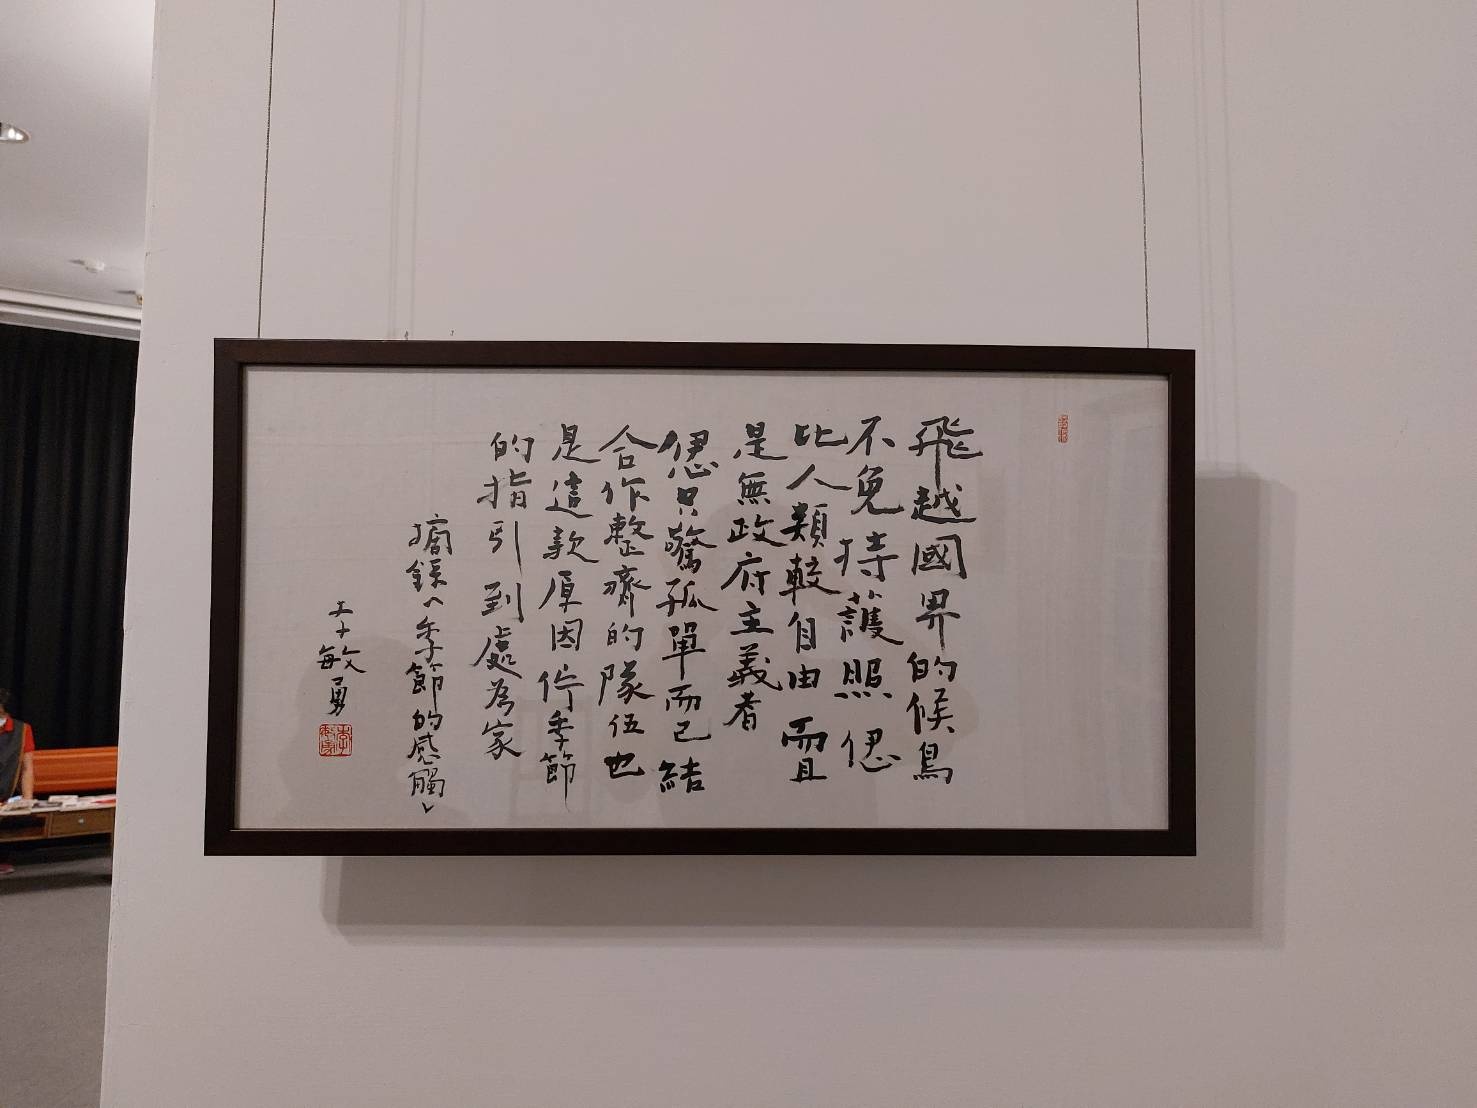 飛越國界的候鳥
不免持護照
比人類較自由 而且
是無政府主義者
只驚孤單而已 結
合作整齊的隊伍 也
是這款原因 佇季節
的指引 到處為家
摘錄〈季節的感觸〉
李敏勇